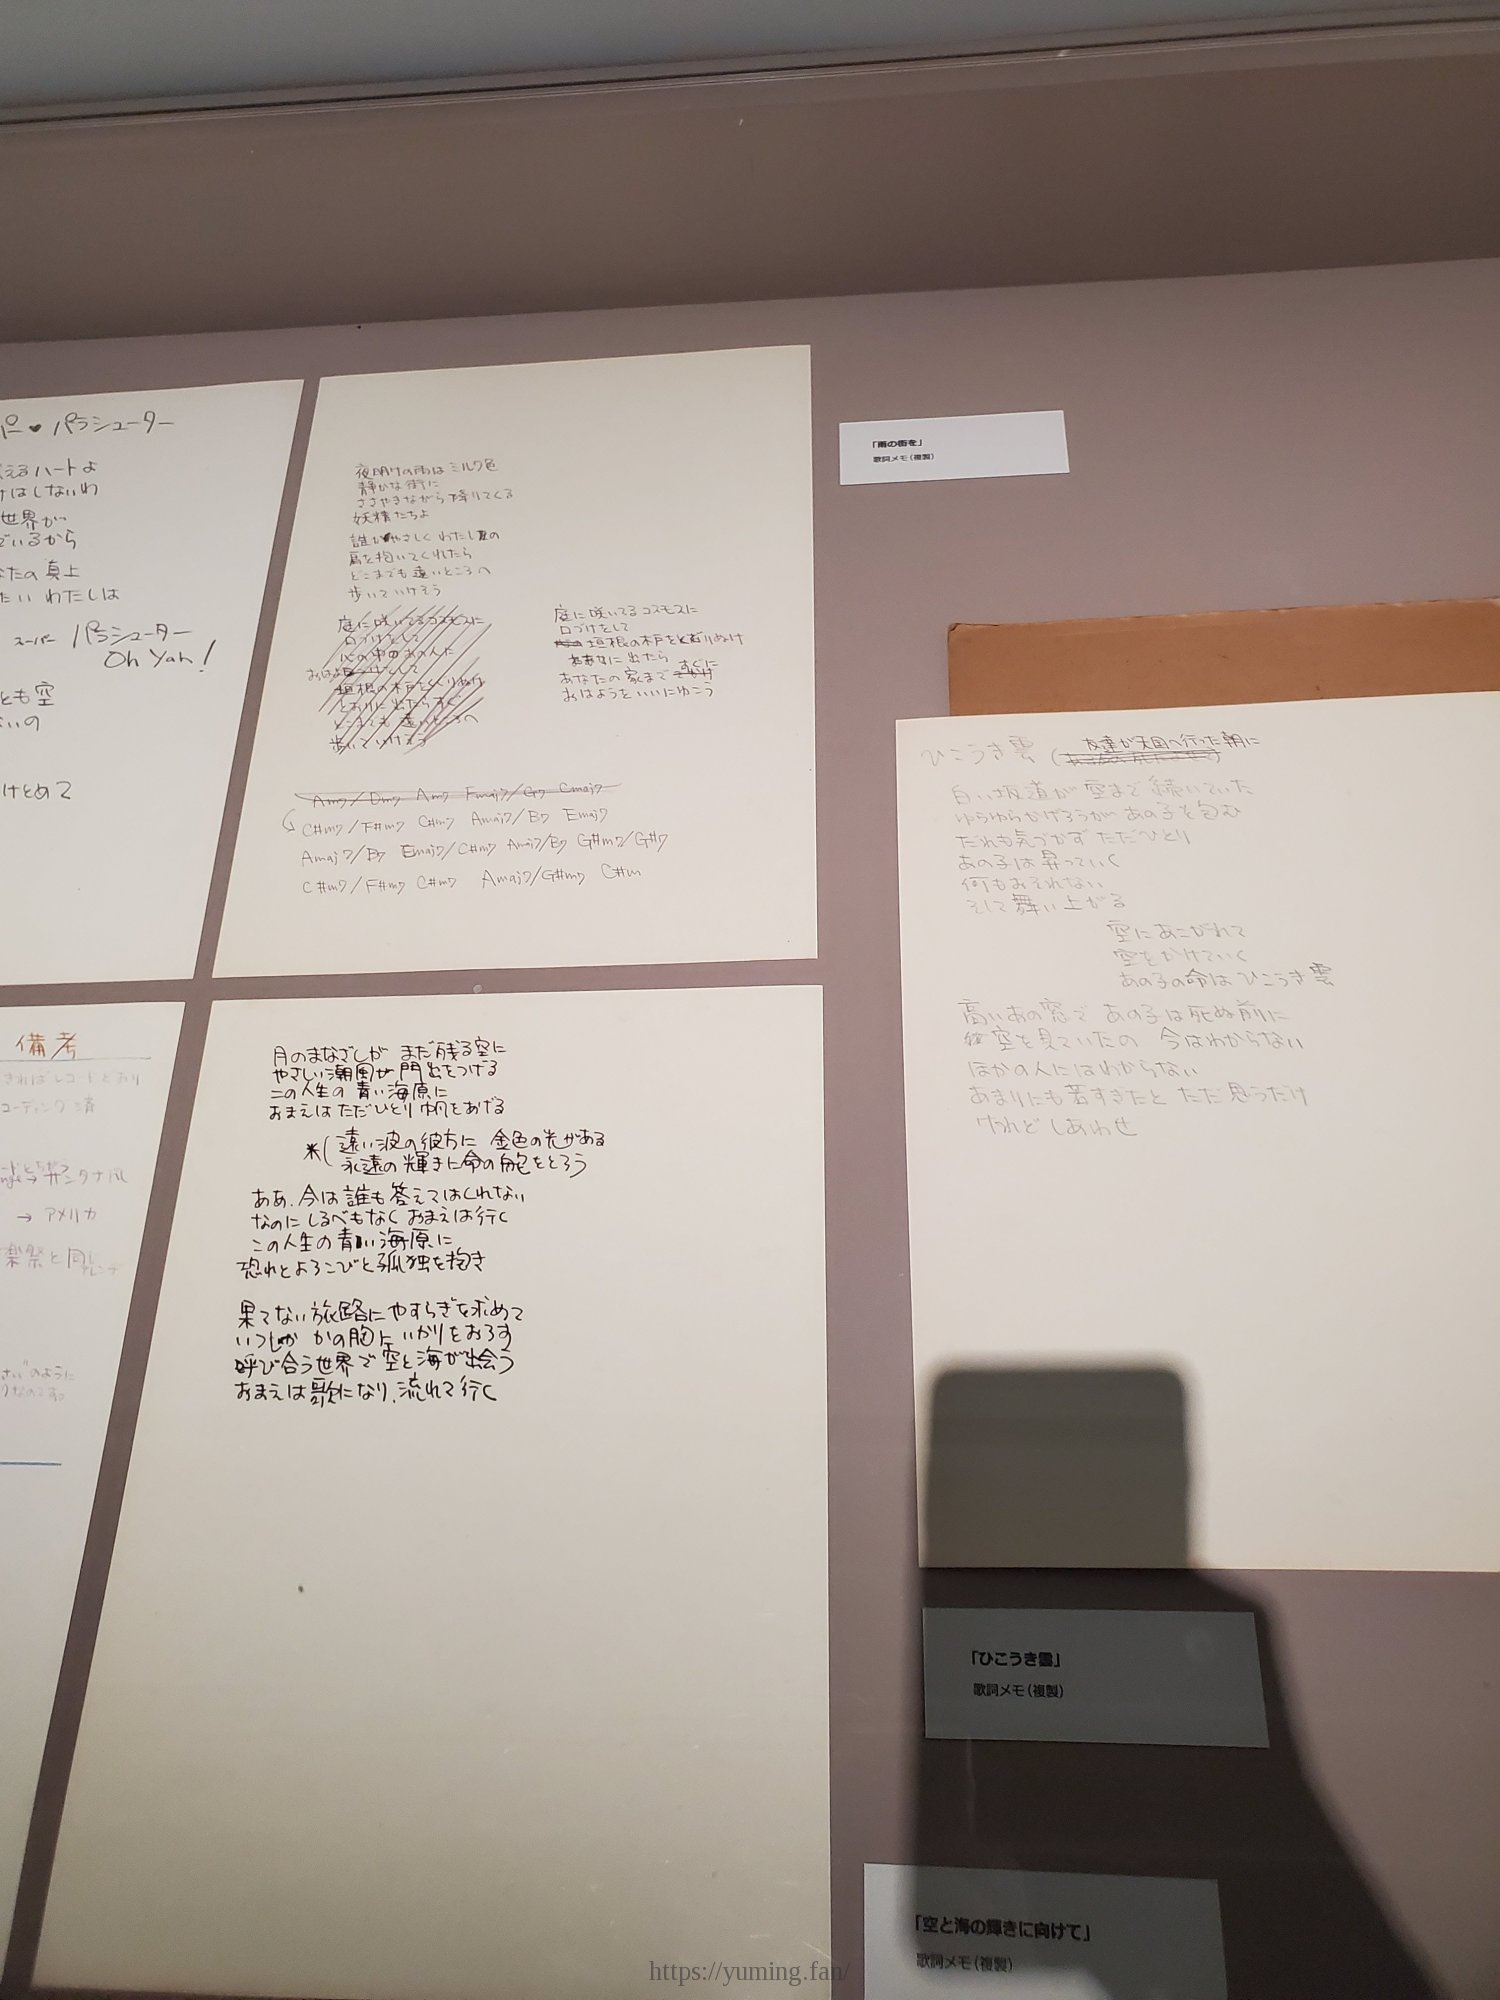 パー♥パラシューター
えるハートよ
けはしないわ
世界が
でいるから
なたの真上
たい わたしは
スーパー パラシューター
Oh Yah!
とも空
ないの
けとめて
夜明けの雨はミルク色
静かな街に
ささやきながら降りてくる
妖精たちよ
誰かやさしくわたしの
肩を抱いてくれたら
どこまでも遠いところへ
歩いていけそう
庭に咲いてるコスモスに
口づけをして
心の中のあの人に
垣根の木戸をくぐりぬけ
とおりに出たらすぐ
どこまでも遠いところへ
歩いていけそう
庭に咲いてるコスモスに
口づけをして
垣根の木戸をとおりぬけ
に出たら
あなたの家まですぐに
おはようをいいにゆこう
Am7/Dm7 Am7 Fmaj7/G7 Cmaj7
C#m7/F#m7 C#m7 Amaj7/B7 Emaj7
Amaj7/B7 Emaj7/C#m7 Amaj7/B7 G#m7/G#7
C#m7/F#m7 C#m7 Amaj7/G#m7 C#m
「雨の街を」
歌詞メモ(複製)
備考
きればレコードどおり
コーディング済
→サンタナ風
→ アメリカ
楽祭と同じ
アレンジ
さい"のように
月のまなざしが まだ残る空に
やさしい潮風が門出をつげる
この人生の青い海原に
おまえはただひとり帆をあげる
*( 遠い波の彼方に 金色の光がある
永遠の輝きに命の舵をとろう
ああ、今は誰も答えてはくれない
なのにしるべもなくおまえは行く
この人生の青い海原に
恐れとよろこびと孤独を抱き
果てない旅路にやすらぎを求めて
いつしか かの胸にいかりをおろす
呼び合う世界で空と海が出会う
おまえは歌になり、流れて行く
ひこうき雲 (友達が天国へ行った朝に
白い坂道が空まで続いていた
ゆらゆらかげろうが あの子を包む
だれも気づかず ただひとり
あの子は昇っていく
何もおそれない
そして舞い上がる
空にあこがれて
空をかけていく
あの子の命はひこうき雲
高いあの窓で あの子は死ぬ前に
空を見ていたの 今はわからない
ほかの人にはわからない
あまりにも若すぎたと ただ思うだけ
けれどしあわせ
「ひこうき雲」
歌詞メモ(複製)
「空と海の輝きに向けて」
歌詞メモ(複製)
https://yuming.fan/